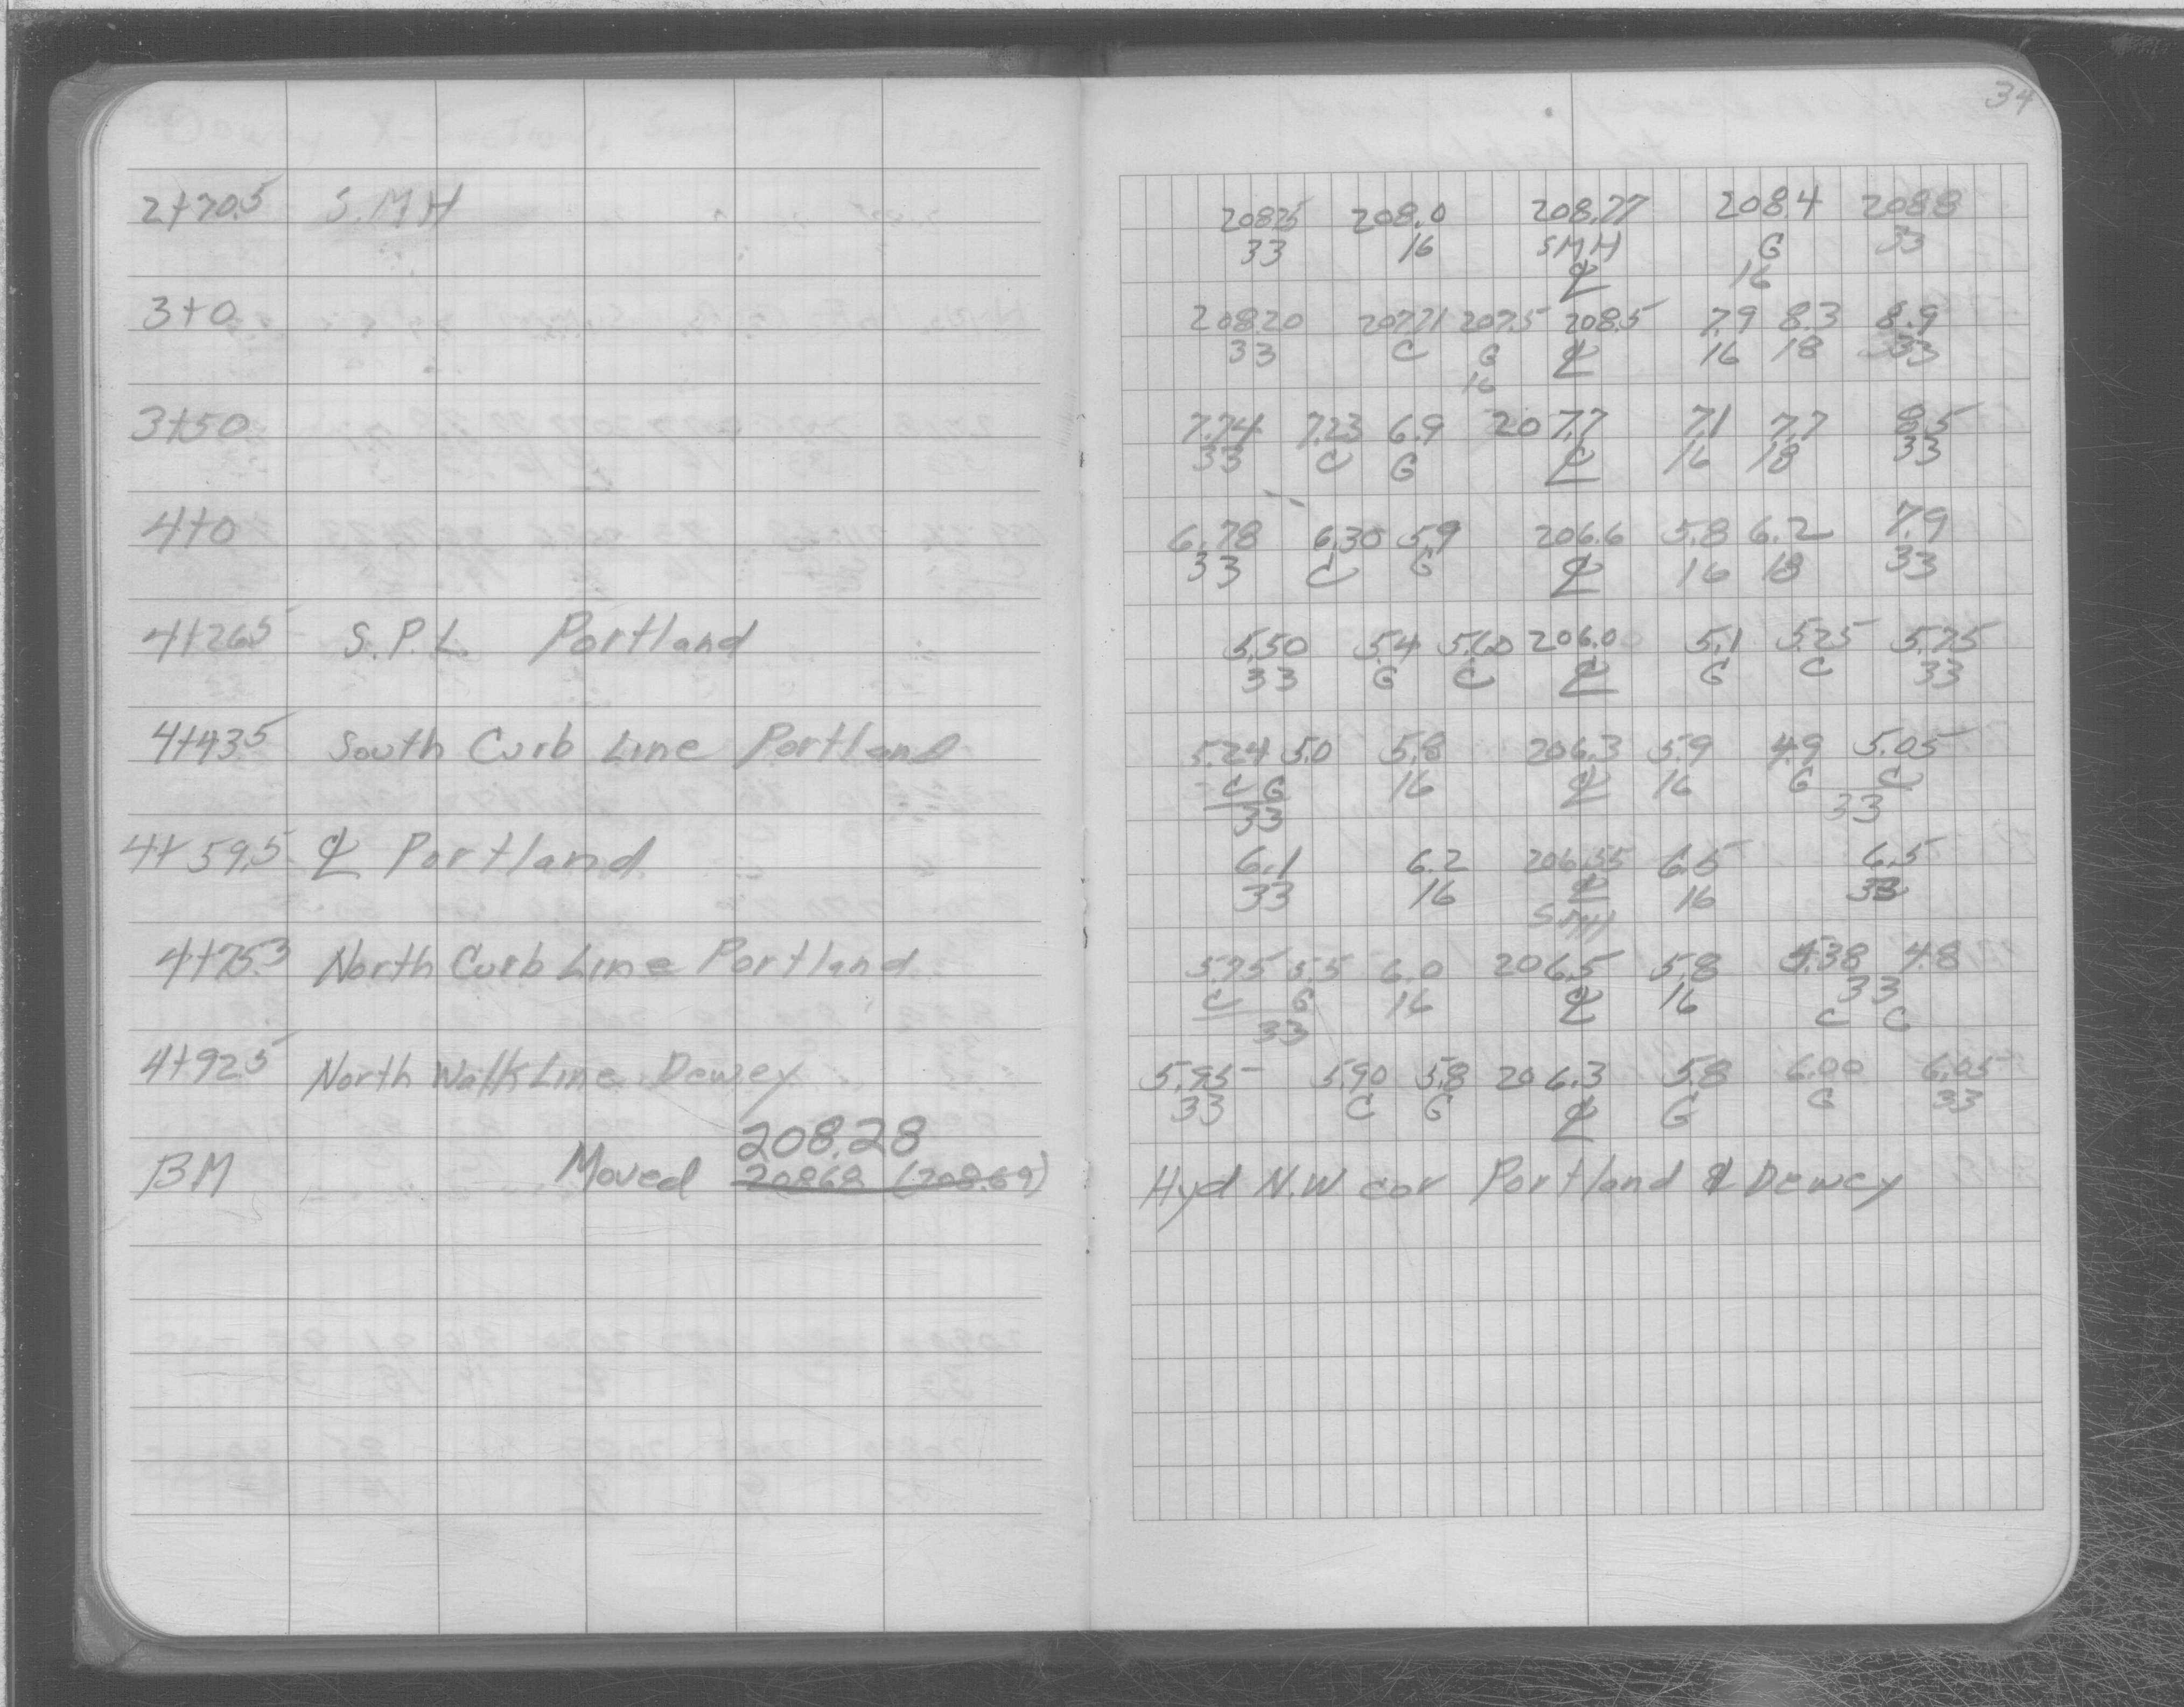 34
2+70.5 S.M.H 208.25 208.0 208.77 208.4 208.8
33 16 SMH G 33
℄ 16
3+0 208.20 207.71 207.5 208.5 7.9 8.3 8.9
33 C G ℄ 16 18 33
16
3+50 7.74 7.23 6.9 207.7 7.1 7.7 8.5
33 C G ℄ 16 18 33
4+0 6.78 6.30 5.9 206.6 5.8 6.2 7.9
33 C G ℄ 16 18 33
4+26.5 S.P.L. Portland 5.50 5.4 5.60 206.0 5.1 5.25 5.75
33 G C ℄ G C 33
4+43.5 South Curb Line Portland 5.24 5.0 5.8 206.3 5.9 4.9 5.05
C G 16 ℄ 16 G C
33 33
4+59.5 ℄ Portland 6.1 6.2 206.55 6.5 6.5
33 16 ℄ 16 33
SMH
4+75.3 North Curb Line Portland 5.75 5.5 6.0 206.5 5.8 5.38 4.8
C G 16 ℄ 16 33
33 C G
4+92.5 North Walk Line Dewey 5.95 5.90 5.8 206.3 5.8 6.00 6.05
33 C G ℄ G G 33
208.28
BM Moved 208.68 (208.69) Hyd N.W cor Portland & Dewey